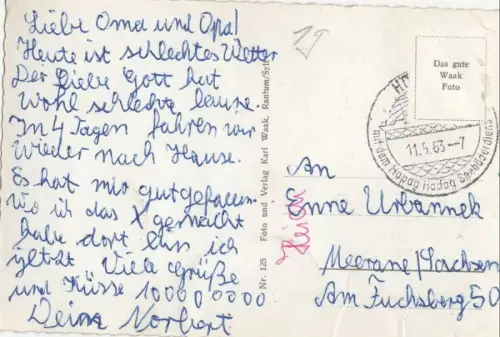 Liebe Oma und Opa!
Heute ist schlechtes Wetter
Der Liebe Gott hat
wohl schlechte laune.
In 4 Tagen fahren wir
wieder nach Hause.
Es hat mir gut gefallen.
Wo ich das X gemacht
habe dort bin ich
jetzt Viele Grüße
und Küsse 1000000000
Deine Norbert
Nr. 125 Foto und Verlag Karl Waak, Rantum/Sylt
Das gute
Waak
Foto
11.5.63--7
mit dem Hapag Hadag Seebäderdienst
An
Enne Urbannek
Meerane/Sachsen
Am Fuchsberg 50